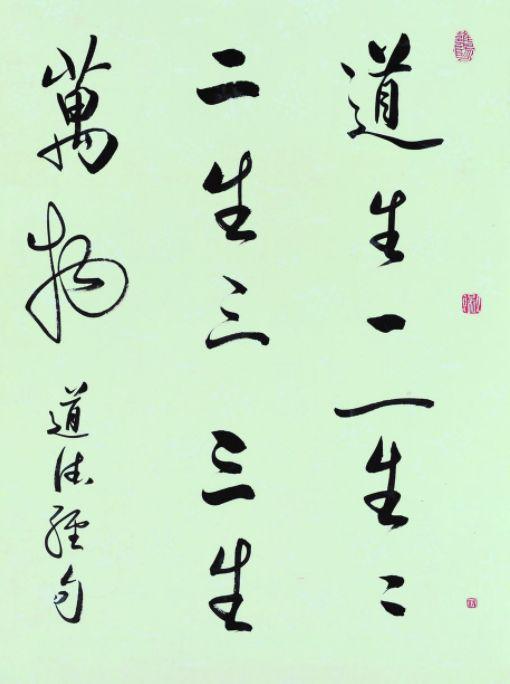 道生一一生二
二生三三生
萬物 道德經句